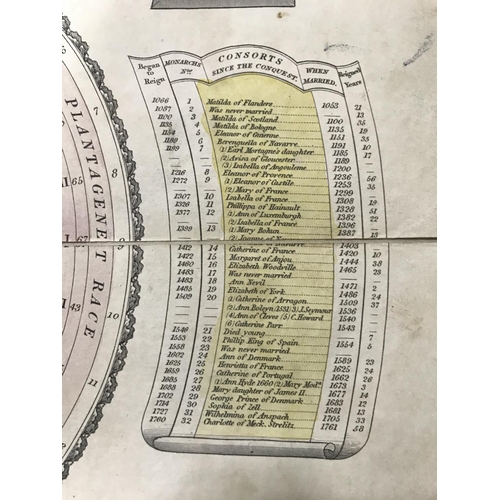 Began to Reign MONARCHS Nos. CONSORTS SINCE THE CONQUEST. WHEN MARRIED. Reigned Years
1066 1 Matilda of Flanders 1053 21
1087 2 Was never married — 13
1100 3 Matilda of Scotland 1100 35
1135 4 Matilda of Bologne 1135 19
1154 5 Eleanor of Guienne 1151 35
1189 6 Berenguella of Navarre 1191 10
1199 7 (1) Earl Mortagne's daughter 1185 17
(2) Avisa of Gloucester 1189 —
(3) Isabella of Angouleme 1200 —
1216 8 Eleanor of Provence 1236 56
1272 9 (1) Eleanor of Castile 1253 35
(2) Mary of France 1299 —
1307 10 Isabella of France 1308 19
1326 11 Philippa of Hainault 1328 51
1377 12 (1) Ann of Luxemburgh 1382 22
(2) Isabella of France 1396 —
1399 13 (1) Mary Bohun 1387 13
(2) Joanna of Navarre 1403
1412 14 Catherine of France 1420 10
1422 15 Margaret of Anjou 1444 38
1460 16 Elizabeth Woodville 1465 23
1483 17 Was never married — —
1483 18 Ann Nevil 1471 2
1485 19 Elizabeth of York 1486 24
1509 20 (1) Catherine of Arragon 1509 37
(2) Ann Boleyn (1532) (3) J. Seymour 1536 —
(4) Ann of Cleves (5) C. Howard 1540 —
(6) Catherine Parr 1543 —
1546 21 Died young — 7
1553 22 Phillip King of Spain 1554 5
1558 23 Was never married —
1602 24 Ann of Denmark 1589 23
1625 25 Henrietta of France 1625 24
1659 26 Catherine of Portugal 1662 26
1685 27 (1) Ann Hyde 1660 (2) Mary Moda. 1673 3
1688 28 Mary daughter of James II. 1677 14
1702 29 George Prince of Denmark 1683 12
1714 30 Sophia of Zell 1681 13
1727 31 Wilhelmina of Anspach 1705 33
1760 32 Charlotte of Meck. Strelitz 1761 58
PLANTAGENET RACE
7
8
9
10
11
65
43